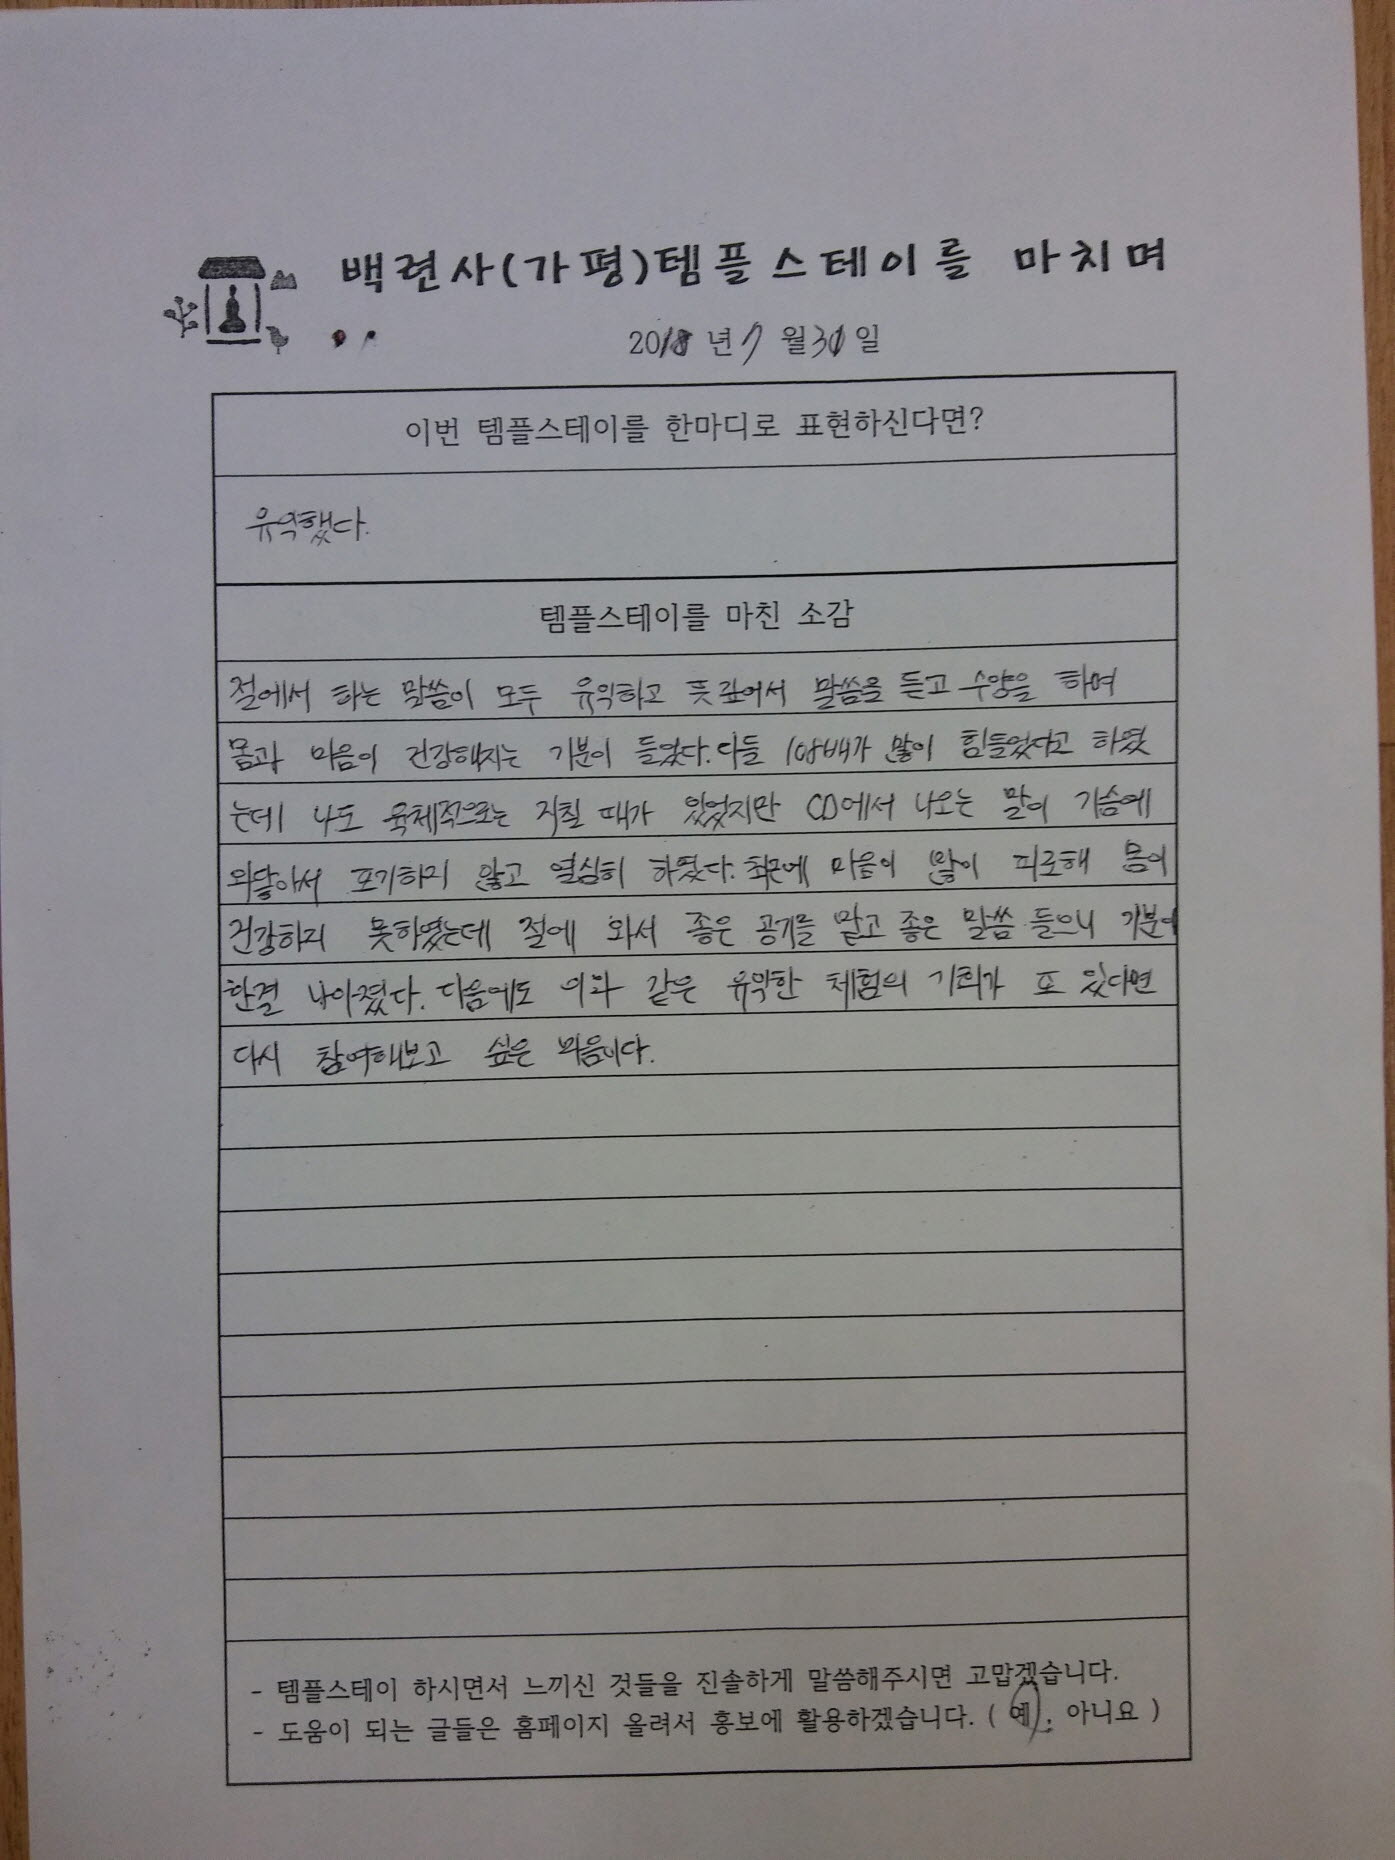 백련사(가평)템플스테이를 마치며
2018년 7월 31일
이번 템플스테이를 한마디로 표현하신다면?
유익했다.
템플스테이를 마친 소감
절에서 하는 말씀이 모두 유익하고 뜻깊어서 말씀을 듣고 수양을 하며
몸과 마음이 건강해지는 기분이 들었다. 다들 108배가 많이 힘들었다고 하였
는데 나도 육체적으로는 지칠 때가 있었지만 CD에서 나오는 말이 가슴에
와닿아서 포기하지 않고 열심히 하였다. 최근에 마음이 많이 피로해 몸이
건강하지 못하였는데 절에 와서 좋은 공기를 맡고 좋은 말씀 들으니 기분이
한결 나아졌다. 다음에도 이와 같은 유익한 체험의 기회가 또 있다면
다시 참여해보고 싶은 마음이다.
- 템플스테이 하시면서 느끼신 것들을 진솔하게 말씀해주시면 고맙겠습니다.
- 도움이 되는 글들은 홈페이지 올려서 홍보에 활용하겠습니다. ( 예 , 아니요 )